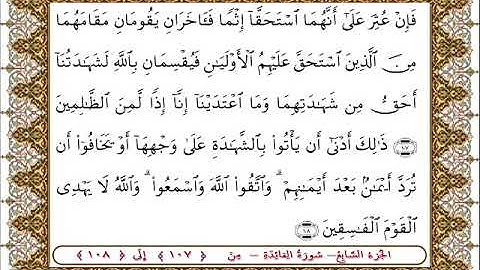 فَإِنْ عُثِرَ عَلَىٰٓ أَنَّهُمَا ٱسْتَحَقَّآ إِثْمًا فَـَٔاخَرَانِ يَقُومَانِ مَقَامَهُمَا
مِنَ ٱلَّذِينَ ٱسْتَحَقَّ عَلَيْهِمُ ٱلْأَوْلَيَـٰنِ فَيُقْسِمَانِ بِٱللَّهِ لَشَهَـٰدَتُنَآ
أَحَقُّ مِن شَهَـٰدَتِهِمَا وَمَا ٱعْتَدَيْنَآ إِنَّآ إِذًا لَّمِنَ ٱلظَّـٰلِمِينَ
۝١٠٧ ذَٰلِكَ أَدْنَىٰٓ أَن يَأْتُوا۟ بِٱلشَّهَـٰدَةِ عَلَىٰ وَجْهِهَآ أَوْ يَخَافُوٓا۟ أَن
تُرَدَّ أَيْمَـٰنٌۢ بَعْدَ أَيْمَـٰنِهِمْ ۗ وَٱتَّقُوا۟ ٱللَّهَ وَٱسْمَعُوا۟ ۗ وَٱللَّهُ لَا يَهْدِى
ٱلْقَوْمَ ٱلْفَـٰسِقِينَ ۝١٠٨
الجزء السابع - سورة المائدة - من ﴿ ١٠٧ ﴾ إلى ﴿ ١٠٨ ﴾